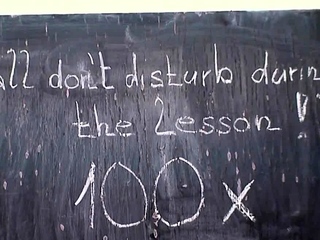 all don't disturb durin
the Lesson!
100 x